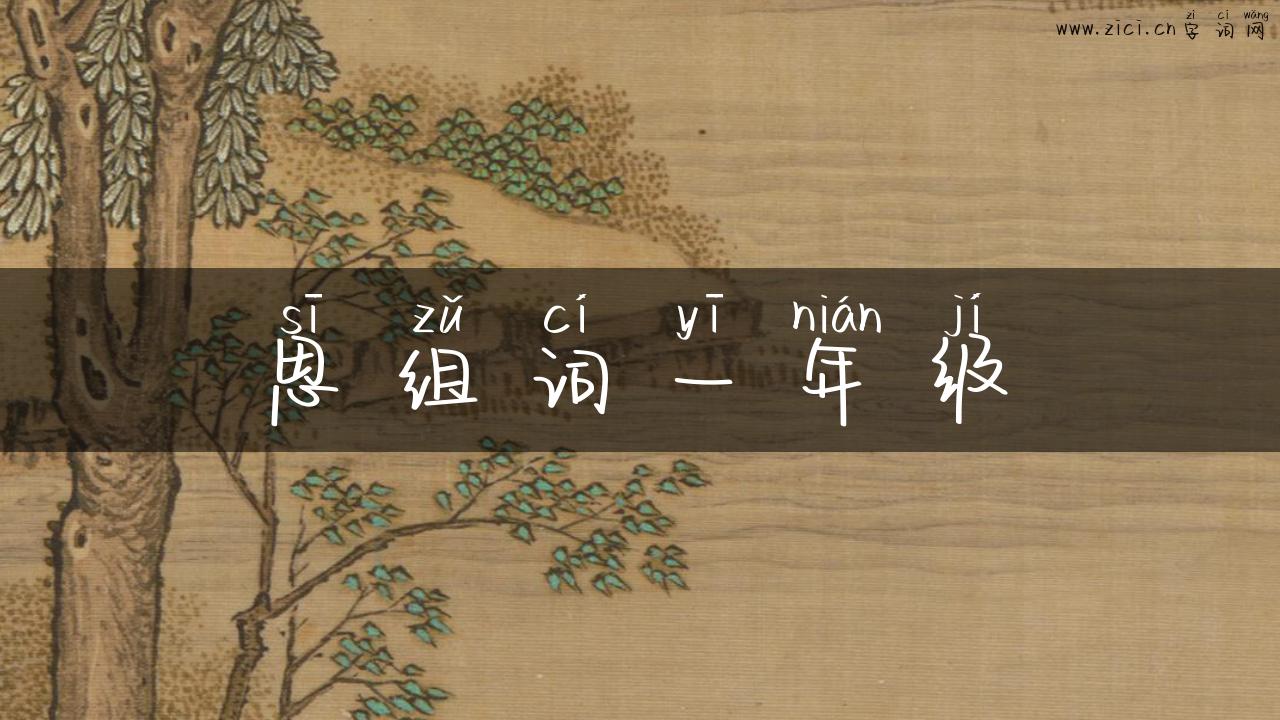 www.zici.cn
zì cí wǎng
字词网
sī zǔ cí yī nián jí
思组词一年级